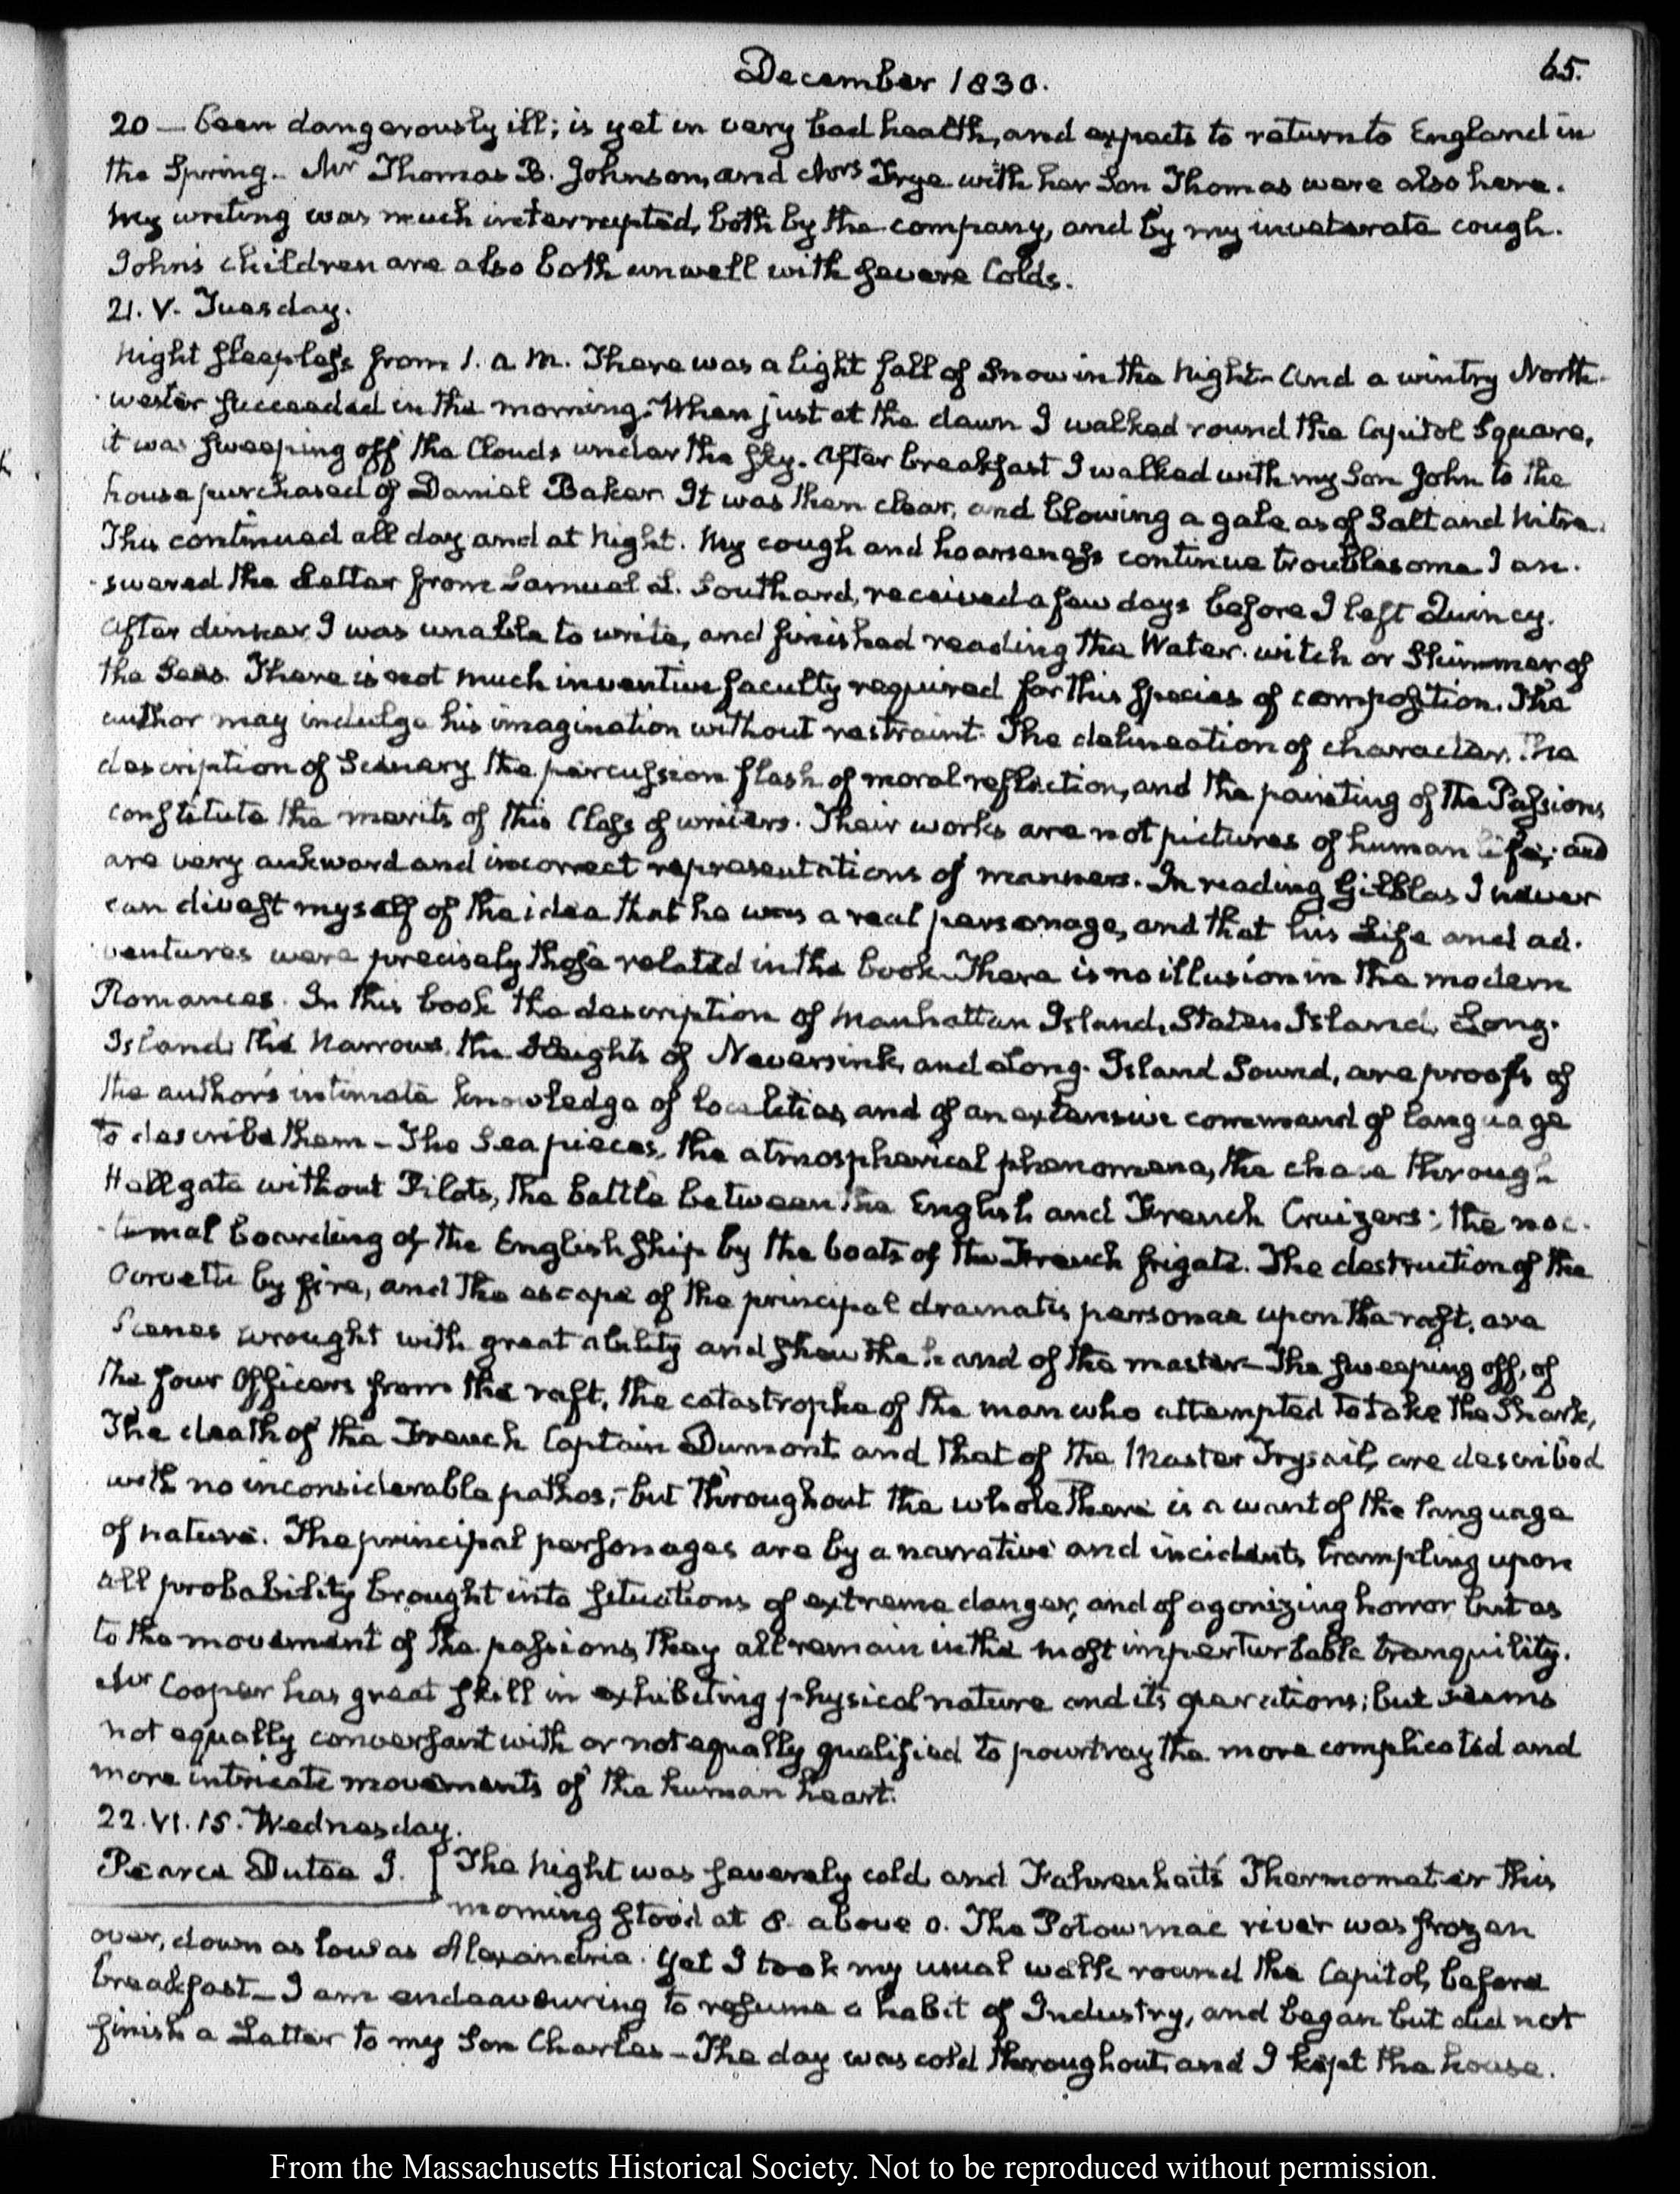 December 1830.
65.
20 — been dangerously ill; is yet in very bad health, and expects to return to England in
the Spring. Mr Thomas B. Johnson, and Mrs Frye with her Son Thomas were also here.
My writing was much interrupted, both by the company, and by my inveterate cough.
John's children are also both unwell with severe Colds.
21. V. Tuesday.
Night sleepless from 1. a.m. There was a light fall of Snow in the Night- And a wintry North-
-wester succeeded in the morning. When just at the dawn I walked round the Capitol Square,
it was sweeping off the Clouds under the sky. After breakfast I walked with my Son John to the
house purchased of Daniel Baker. It was then clear, and blowing a gale as of Salt and Nitre.
This continued all day and at Night. My cough and hoarseness continue troublesome I an-
-swered the Letter from Samuel L. Southard, received a few days before I left Quincy.
After dinner I was unable to write, and finished reading the Water-witch or Skimmer of
the Seas. There is not much inventive faculty required for this species of composition. The
author may indulge his imagination without restraint. The delineation of character, the
description of Scenery the percussion flash of moral reflection, and the painting of the Passions,
constitute the merits of this Class of writers. Their works are not pictures of human life; and
are very aukward and incorrect representations of manners. In reading Gilblas I never
can divest myself of the idea that he was a real personage, and that his Life and ad-
-ventures were precisely those related in the book. There is no illusion in the modern
Romances. In this book the description of Manhattan Island, Staten Island, Long-
Island, the Narrows, the Heights of Neversink, and Long-Island Sound, are proofs of
the author's intimate knowledge of localities, and of an extensive command of language
to describe them - The Sea pieces, the atmospherical phenomena, the chase through
Hellgate without Pilots, the battle between the English and French Cruizers; the noc-
-turnal boarding of the English ship by the boats of the French frigate. The destruction of the
Corvette by fire, and the escape of the principal dramatis personae upon the raft, are
Scenes wrought with great ability and shew the hand of the master- The sweeping off, of
the four Officers from the raft, the catastrophe of the man who attempted to take the Shark,
The death of the French Captain Dumont and that of the Master Trysail, are described
with no inconsiderable pathos;- but throughout the whole there is a want of the language
of nature. The principal personages are by a narrative and incidents, trampling upon
all probability brought into situations of extreme danger, and of agonizing horror but as
to the movement of the passions, they all remain in the most imperturbable tranquility.
Mr Cooper has great skill in exhibiting physical nature and its operations; but seems
not equally conversant with or not equally qualified to pourtray the more complicated and
more intricate movements of the human heart.
22. VI. 15. Wednesday.
Pearce Dutee J. The Night was severely cold and Fahrenheit's Thermometer this
morning stood at 8. above 0. The Potowmac river was frozen
over, down as low as Alexandria. Yet I took my usual walk round the Capitol, before
breakfast - I am endeavouring to resume a habit of Industry, and began but did not
finish a Letter to my Son Charles - The day was cold throughout, and I kept the house.
From the Massachusetts Historical Society. Not to be reproduced without permission.